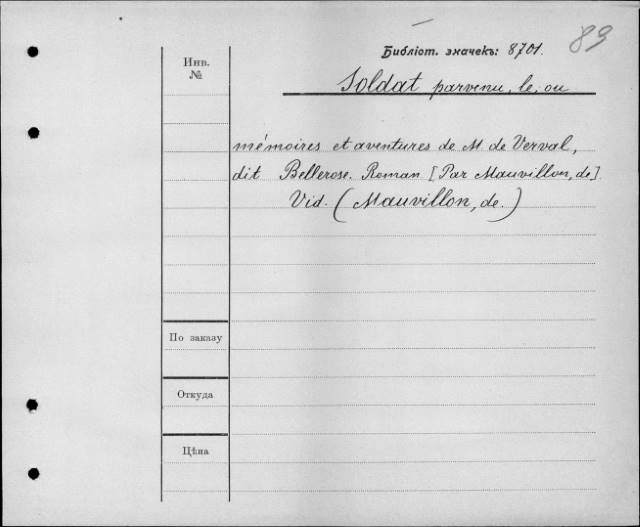 89
Библіот. значекъ: 8701.
Инв.
№
Soldat parvenu, le, ou
mémoires et aventures de M. de Verval,
dit Bellerose. Roman [Par Mauvillon, de]
Vid. (Mauvillon, de.)
По заказу
Откуда
Цѣна